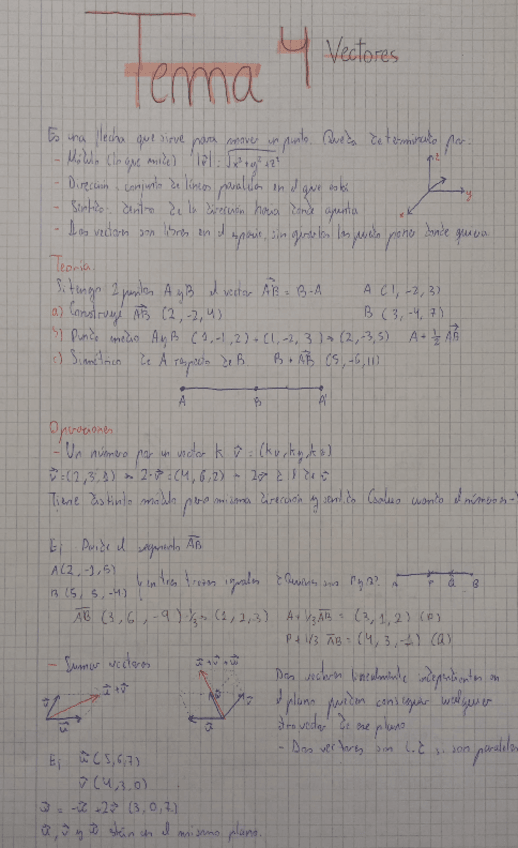 Tema 4 Vectores
Es una flecha que sirve para mover un punto. Queda determinado por:
- Módulo (lo que mide) |v| = √x²+y²+z²
- Dirección: conjunto de líneas paralelas en el que está
- Sentido: dentro de la dirección hacia donde apunta
- Los vectores son libres en el espacio, sin girarlos los puedo poner donde quiera
z
y
x
Teoría
Si tengo 2 puntos A y B el vector AB = B-A A (1, -2, 3)
a) Construye AB (2, -2, 4) B (3, -4, 7)
b) Punto medio A y B (1, -1, 2) + (1, -2, 3) = (2, -3, 5) A + 1/2 AB
c) Simétrico de A respecto de B B + AB (5, -6, 11)
A B A'
Operaciones
- Un número por un vector k v = (kx, ky, kz)
v = (2, 3, 1) 2·v = (4, 6, 2)
Tiene distinto módulo pero misma dirección y sentido (salvo cuando el número es -
Ej Divide el segmento AB
A (2, -1, 5)
B (5, 5, -4) en tres trozos iguales ¿Quiénes son P y Q?
A P Q B
AB (3, 6, -9) 1/3 = (1, 2, 3) A + 1/3 AB = (3, 1, 2) (P)
P + 1/3 AB = (4, 3, -1) (Q)
- Sumar vectores
u + v
v
u
u + v + w
Dos vectores linealmente independientes en
el plano pueden conseguir cualquier
otro vector de ese plano
- Dos vectores son L.D si son paralelos
Ej u (5, 6, 7)
v (4, 3, 0)
w = -u + 2v (3, 0, 7)
u, v y w están en el mismo plano.